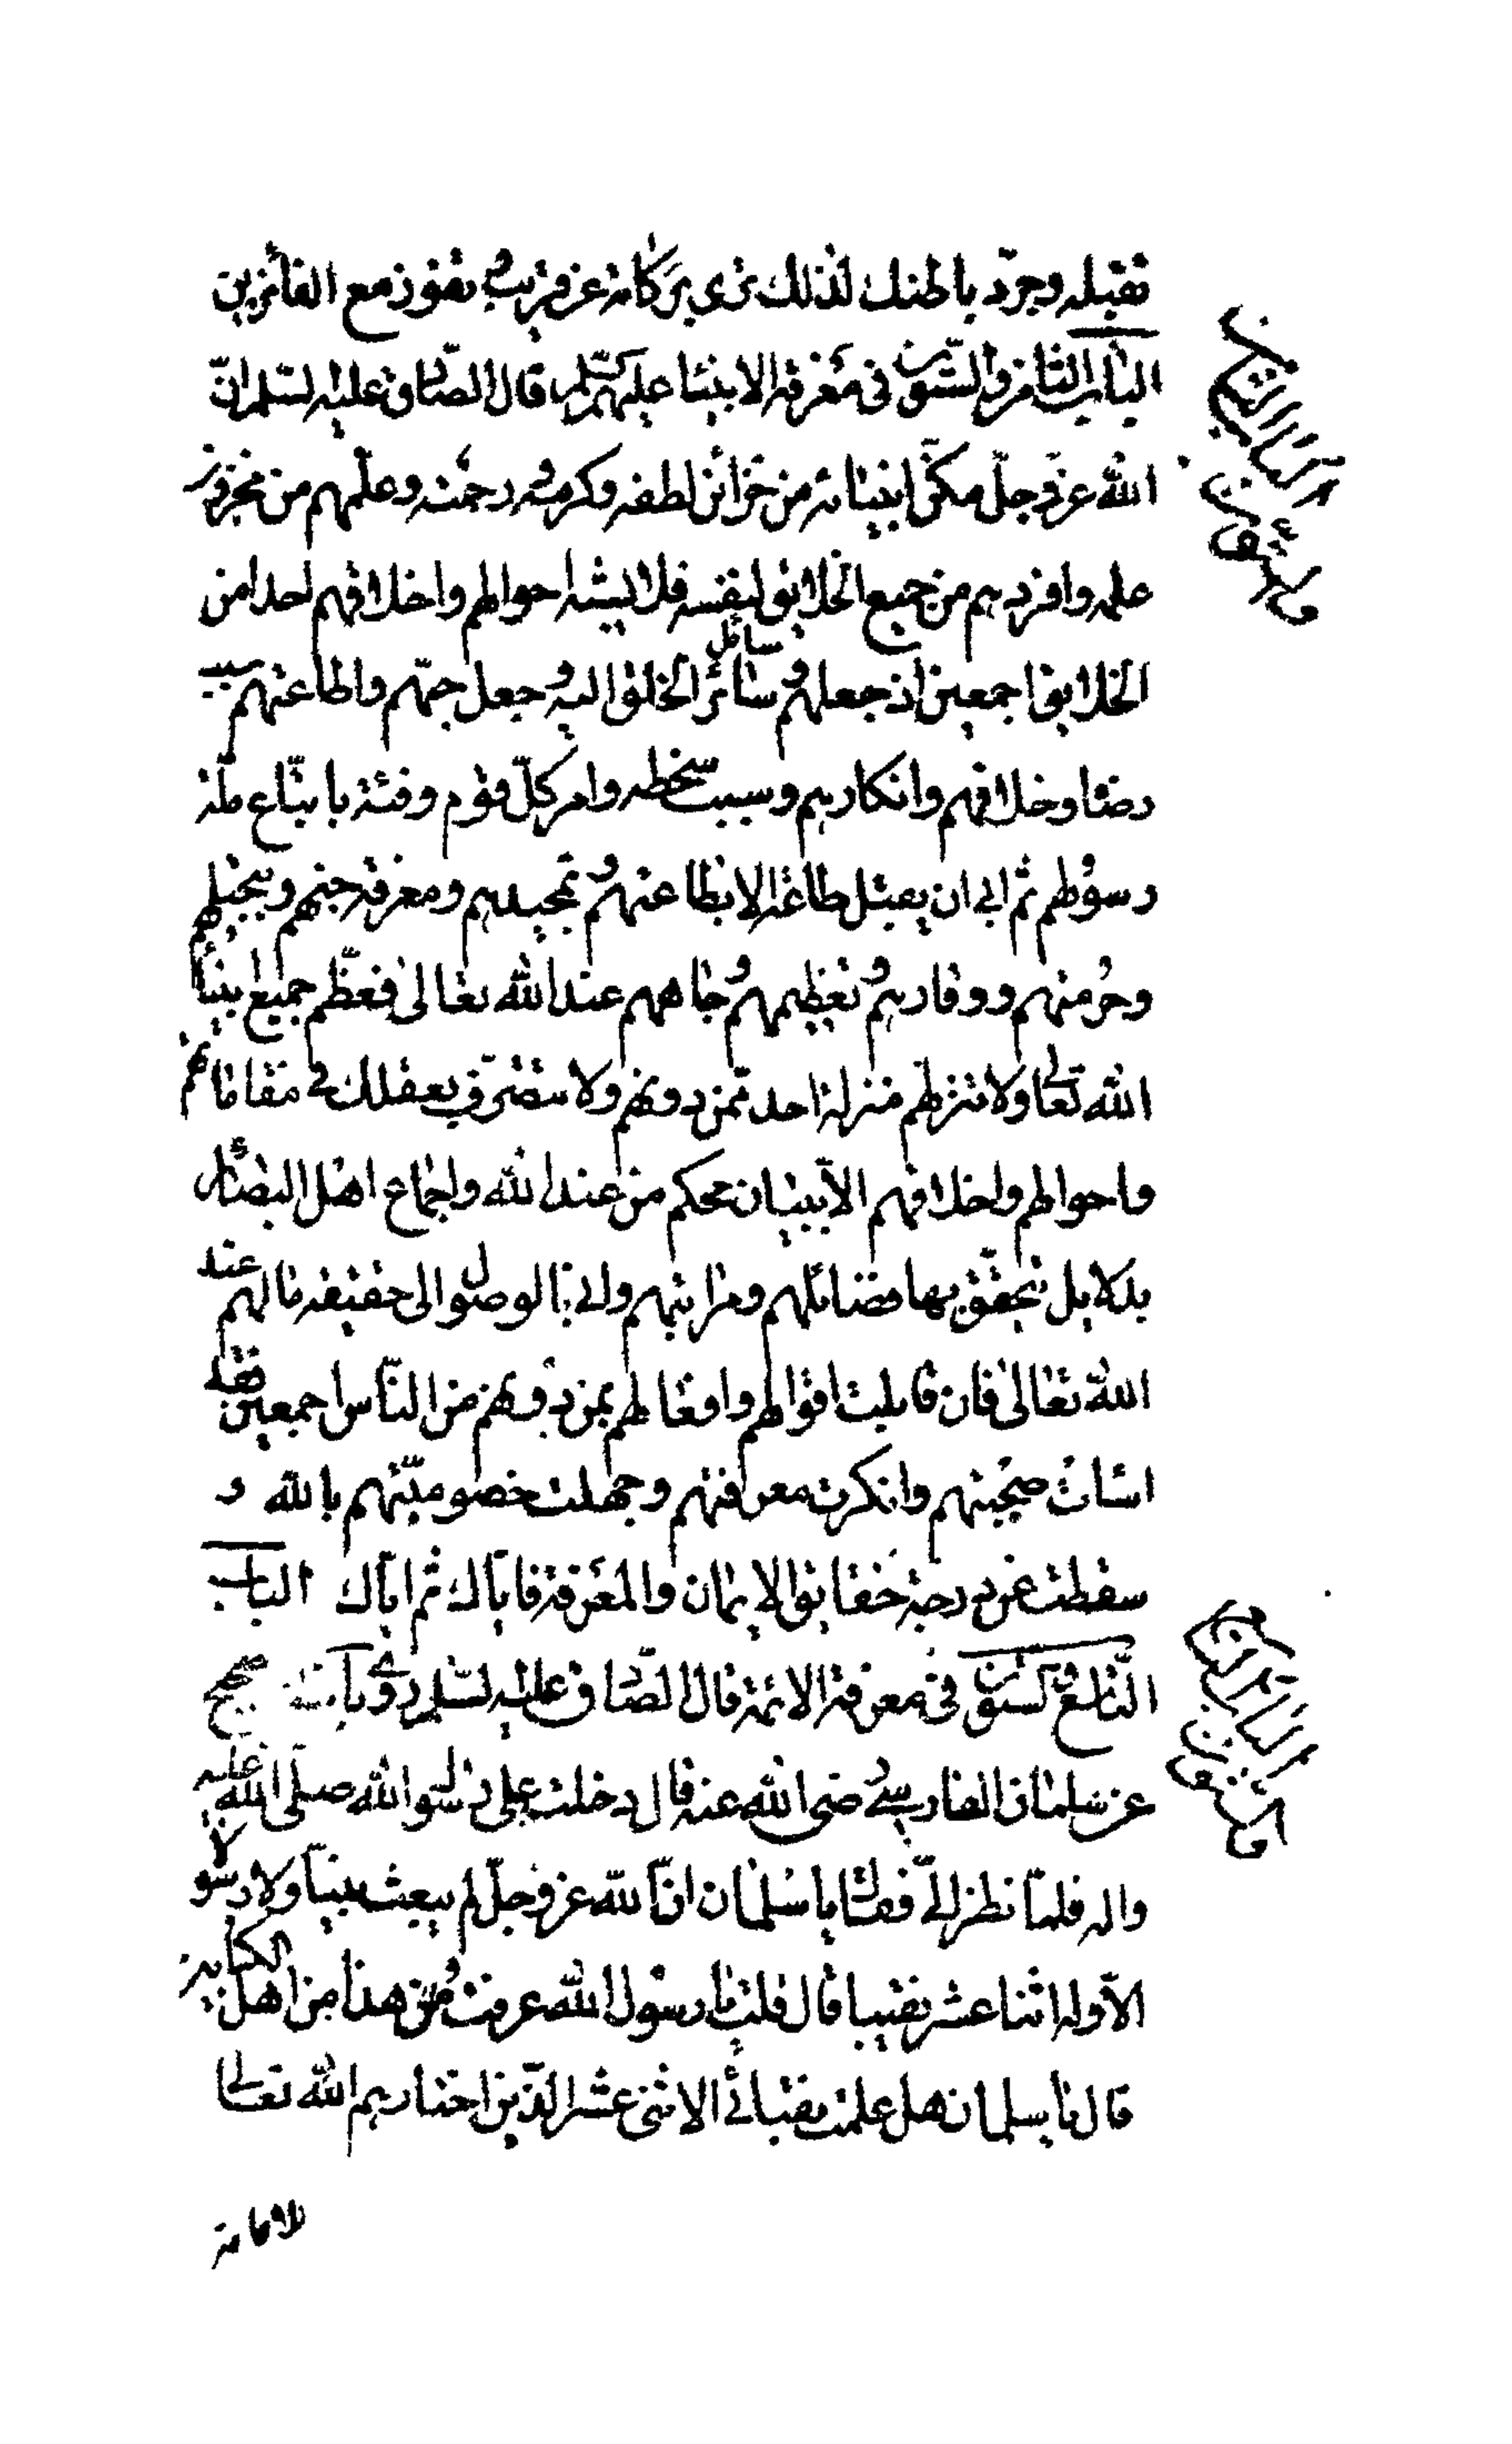 بقبله وجرد باطنك لذلك ترى بركاته عن قريب وتفوز مع الفائزين
الباب الثامن والستون فى معرفة الانبياء عليهم السلم قال الصادق عليه السلم ان
الله عز وجل مكن انبيائه من خزائن لطفه وكرمه ورحمته وعلمهم من مخزون
علمه وافردهم من جميع الخلايق لنفسه فلا يشبه احوالهم واخلاقهم احدا من
الخلايق اجمعين اذ جعلهم وسائل سائر الخلق اليه وجعل حبهم واطاعتهم سبب
رضاه وخلافهم وانكارهم وسبب سخطه وامر كل قوم وفئة باتباع ملة
رسولهم ثم ابى ان يقبل طاعة الا بطاعتهم وتمجيدهم ومعرفة حبهم وتبجيلهم
وحرمتهم ووقارهم وتعظيمهم وجاههم عند الله تعالى فعظم جميع انبياء
الله تعالى ولا تنزلهم منزلة احد ممن دونهم ولا تتصرف بعقلك فى مقاماتهم
واحوالهم واخلاقهم الا ببيان محكم من عند الله واجماع اهل البصائر
بدلايل تتحقق بها فضائلهم ومراتبهم وانى بالوصول الى حقيقة مالهم عند
الله تعالى فان قابلت اقوالهم وافعالهم بمن دونهم من الناس اجمعين فقد
اسات صحبتهم وانكرت معرفتهم وجهلت خصوصيتهم بالله و
سقطت عن درجة حقايق الايمان والمعرفة فاياك ثم اياك الباب
التاسع والستون فى معرفة الائمة قال الصادق عليه السلم روى باسناد صحيح
عن سلمان الفارسى رضى الله عنه قال دخلت على رسول الله صلى الله عليه
واله فلما نظر الى فقال يا سلمان ان الله عز وجل لم يبعث نبيا ولا رسولا
الا وله اثنا عشر نقيبا قال قلت يا رسول الله عرفت هذا من اهل الكتابين
قال يا سلمان هل علمت نقبائى الاثنى عشر الذين اختارهم الله تعالى
للامامة